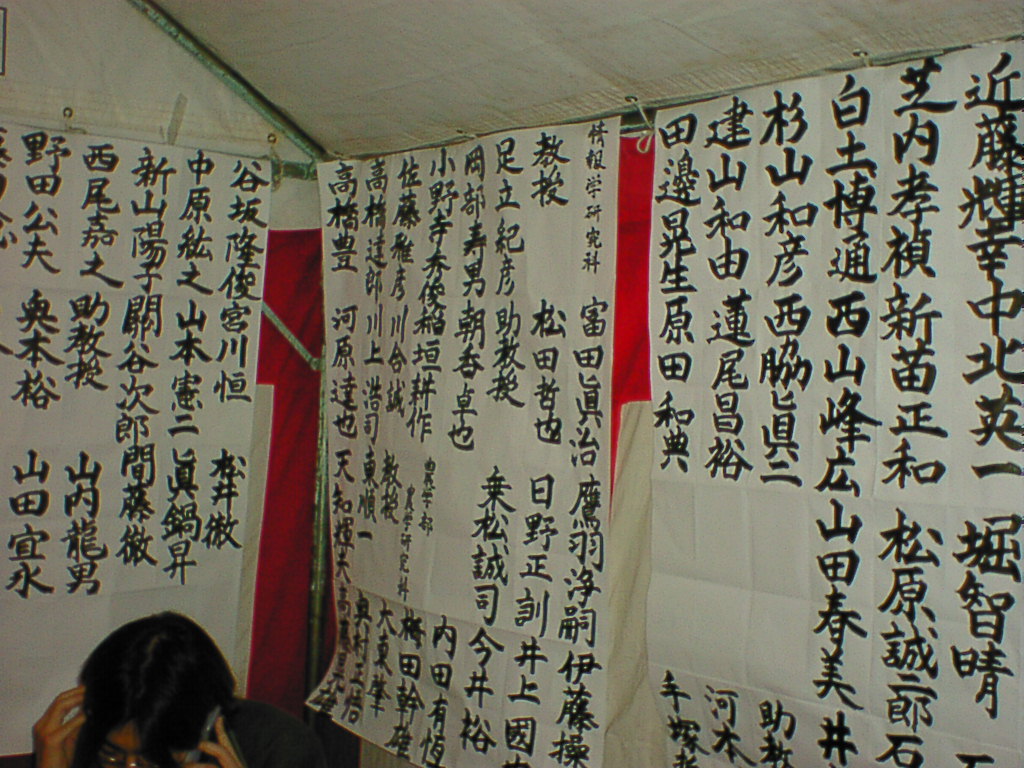 近藤輝幸 中北英一 堀智晴
芝内孝禎 新苗正和 松原誠二郎 石
白土博通 西山峰広 山田春美 井
杉山和彦 西脇眞二 助教
建山和由 蓮尾昌裕 河木
田邊晃生 原田和典 手塚
情報学研究科 富田眞治 鷹羽浄嗣 伊藤操
教授 松田哲也 日野正訓 井上國
足立紀彦 助教授 乗松誠司 今井裕
岡部寿男 朝香卓也 内田有恆
小野寺秀俊 稲垣耕作 農学部 農学研究科 梅田幹雄
佐藤雅彦 川合誠 教授 大東肇
高橋達郎 川上浩司 東順一 奥村正悟
高橋豊 河原達也 天知輝夫
谷坂隆俊 宮川恒 松井徹
中原紘之 山本憲二 眞鍋昇
新山陽子 關谷次郎 間藤徹
西尾嘉之 助教授 山内龍男
野田公夫 奥本裕 山田宜永